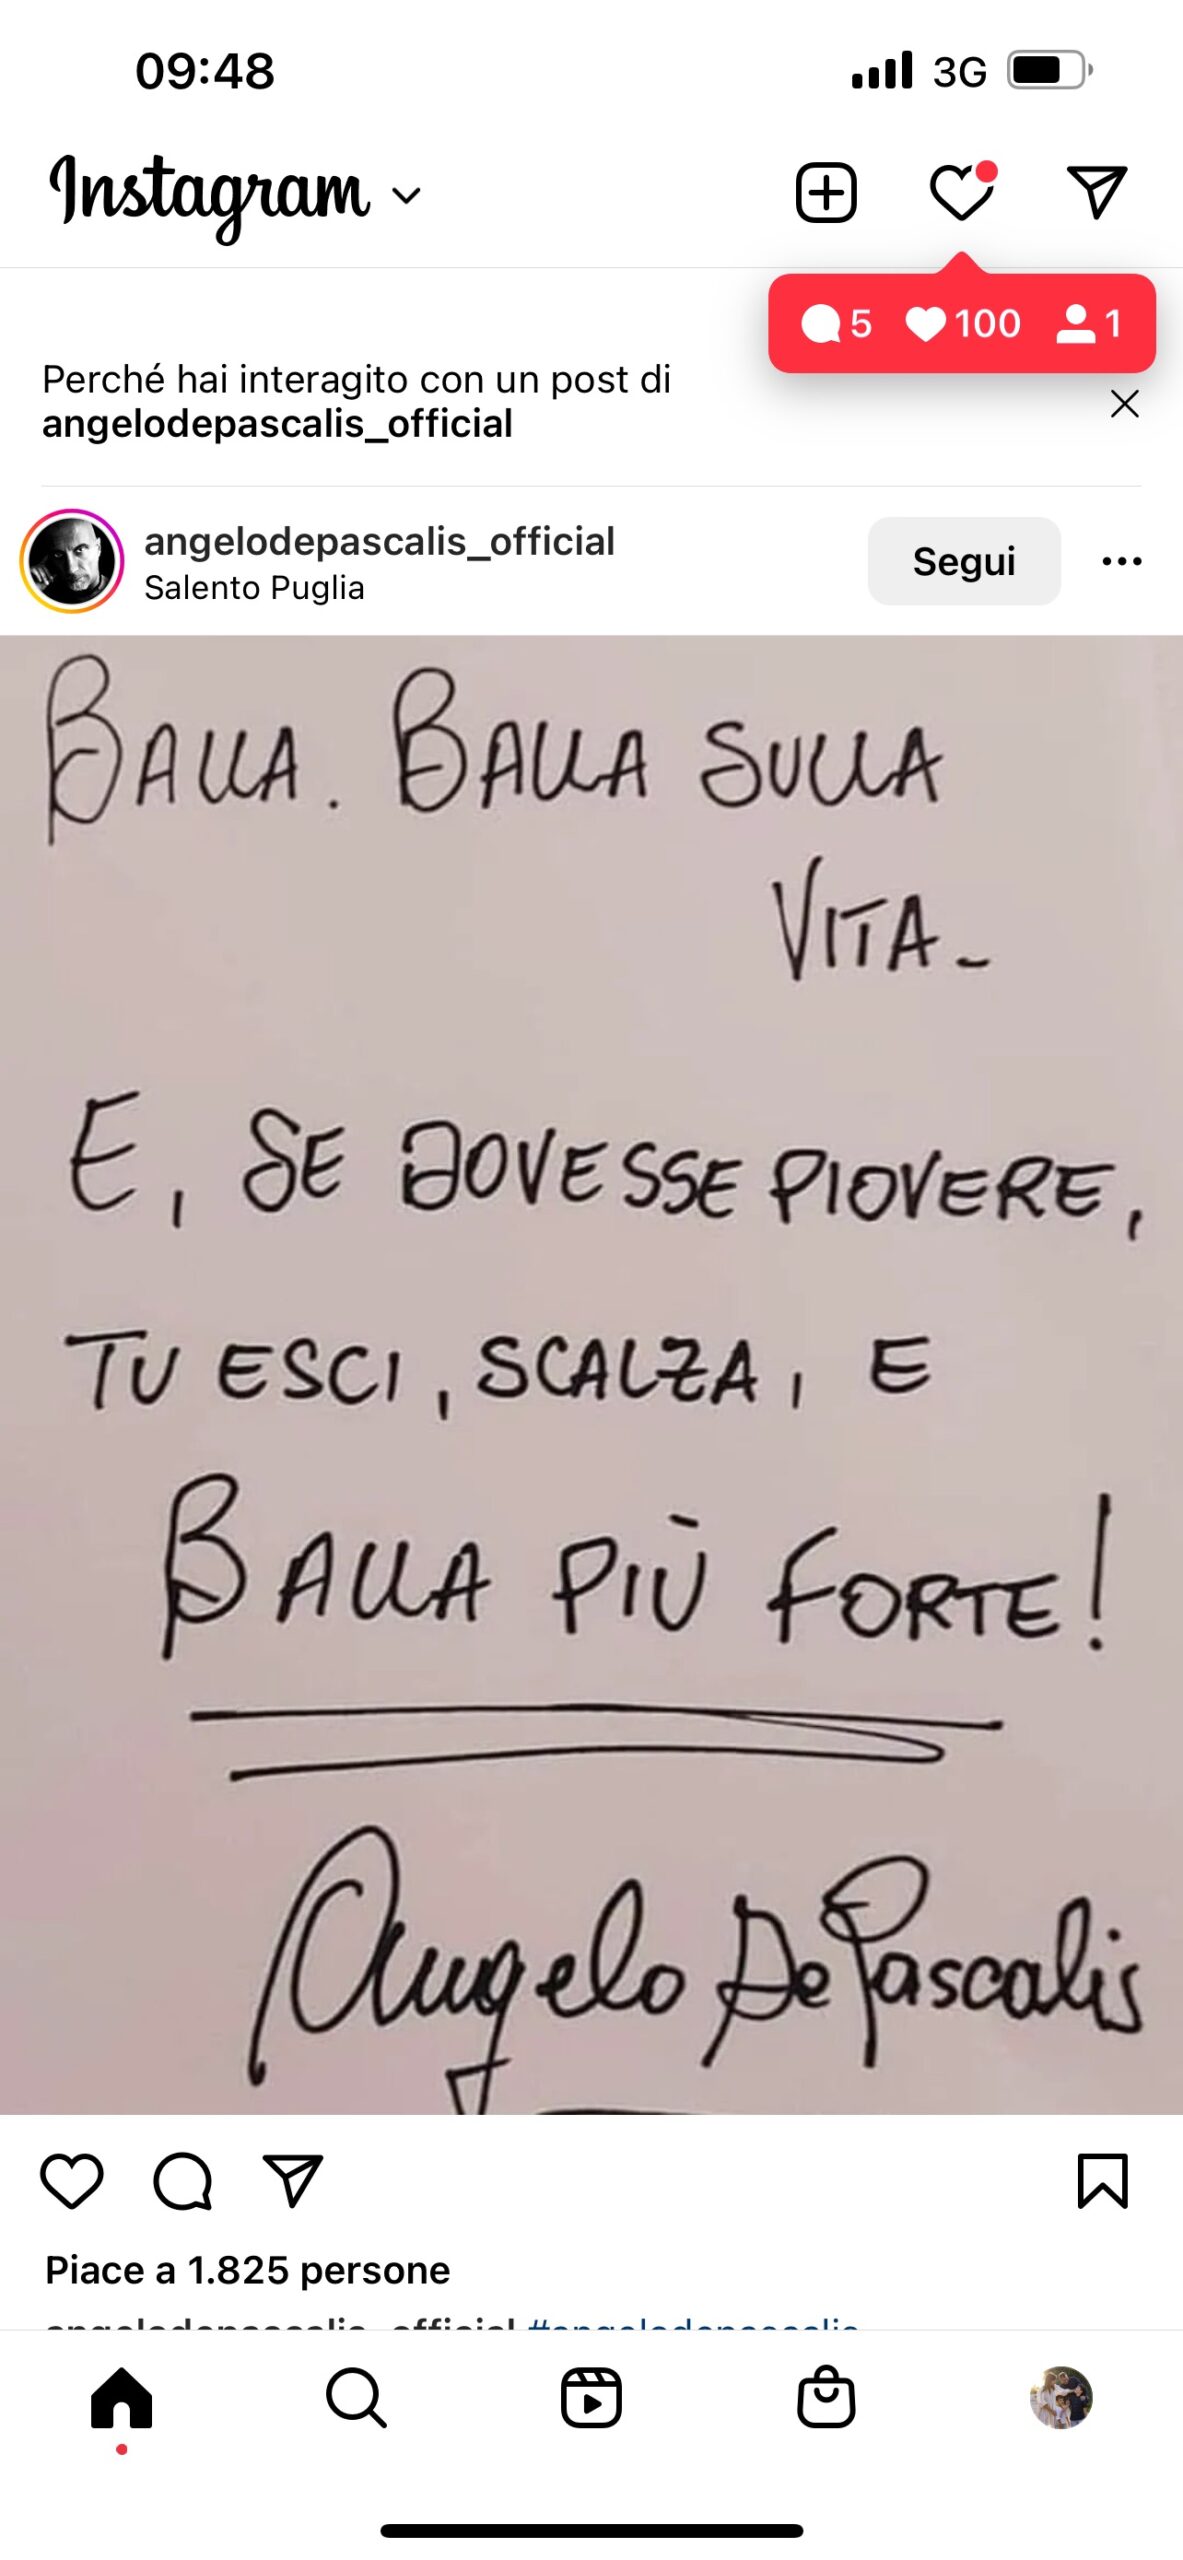 09:48
3G
Instagram
5 100 1
Perché hai interagito con un post di
angelodepascalis_official
angelodepascalis_official
Salento Puglia
Segui
BALLA. BALLA SULLA
VITA_
E, SE DOVESSE PIOVERE,
TU ESCI, SCALZA, E
BALLA PIÙ FORTE!
Angelo De Pascalis
Piace a 1.825 persone
angelodepascalis_official #angelodepascalis